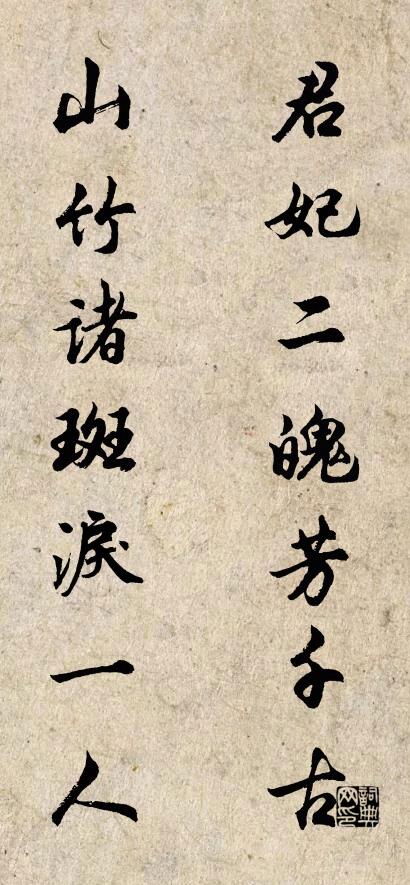 君妃二魄芳千古
山竹诸斑淚一人
詞典
网印